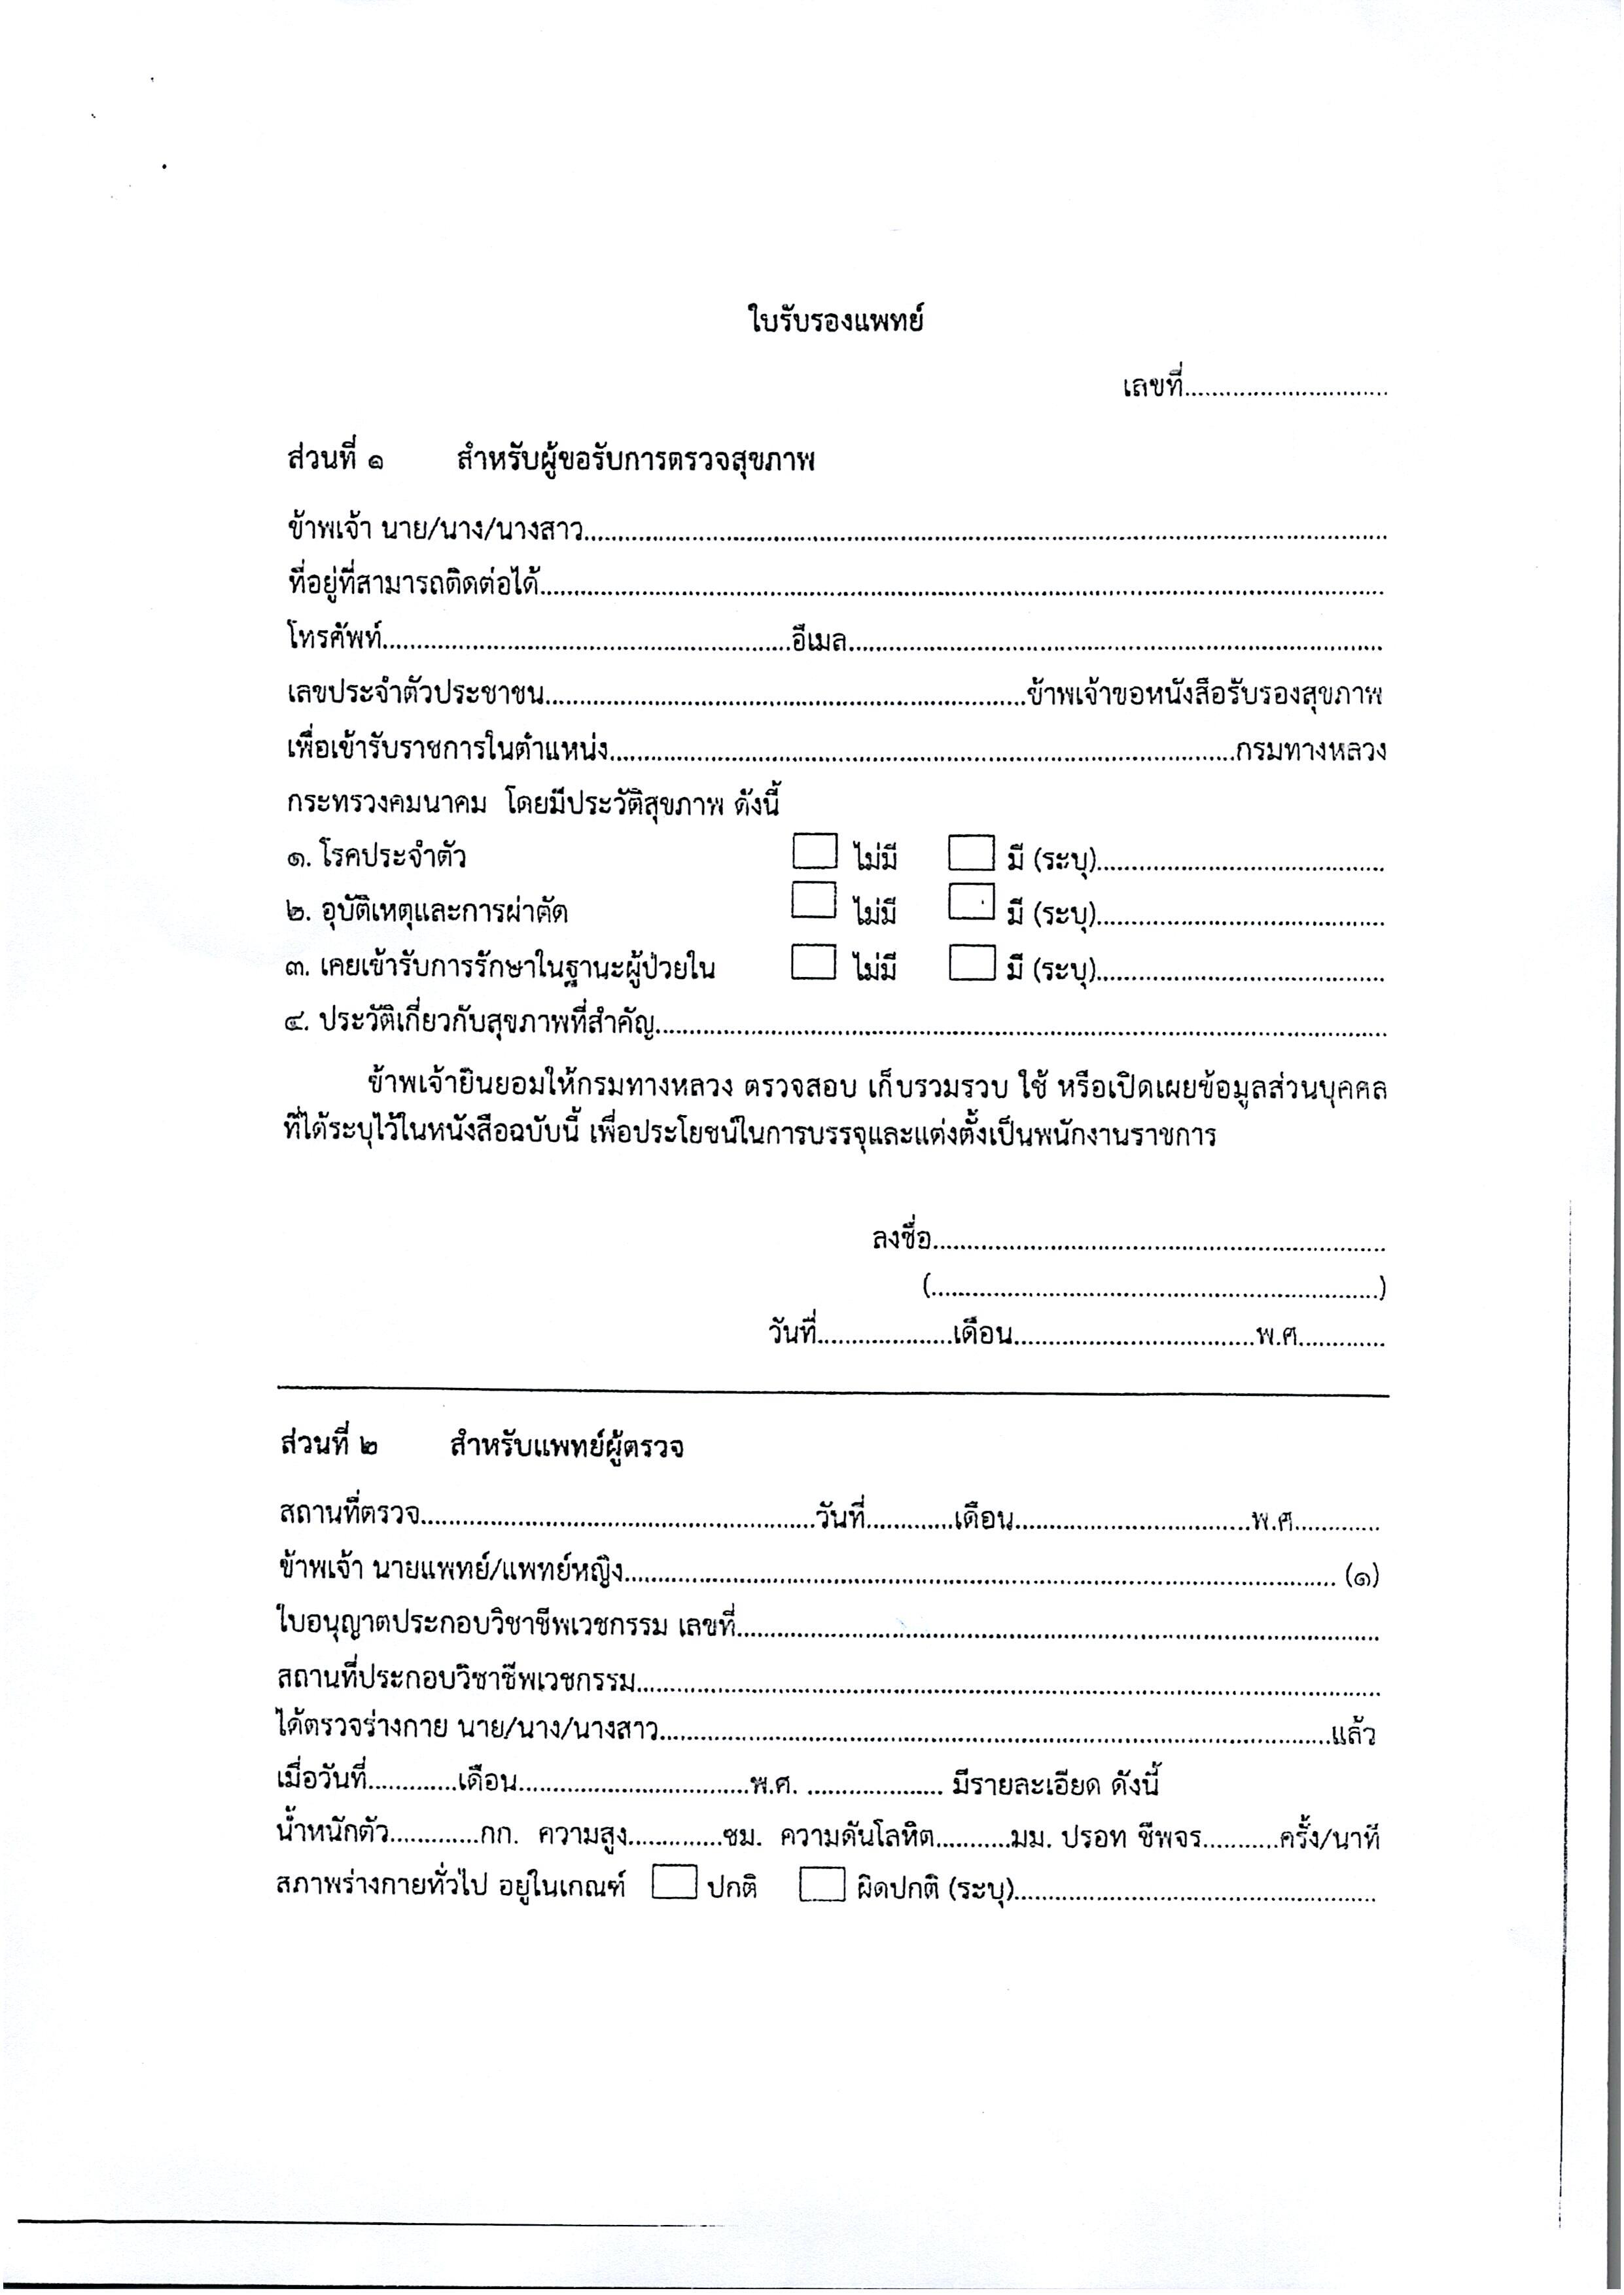 ใบรับรองแพทย์
เลขที่..............................
ส่วนที่ ๑ สำหรับผู้ขอรับการตรวจสุขภาพ
ข้าพเจ้า นาย/นาง/นางสาว..............................
ที่อยู่ที่สามารถติดต่อได้..............................
โทรศัพท์..............................อีเมล..............................
เลขประจำตัวประชาชน..............................ข้าพเจ้าขอหนังสือรับรองสุขภาพ
เพื่อเข้ารับราชการในตำแหน่ง..............................กรมทางหลวง
กระทรวงคมนาคม โดยมีประวัติสุขภาพ ดังนี้
๑. โรคประจำตัว ☐ ไม่มี ☐ มี (ระบุ)..............................
๒. อุบัติเหตุและการผ่าตัด ☐ ไม่มี ☐ มี (ระบุ)..............................
๓. เคยเข้ารับการรักษาในฐานะผู้ป่วยใน ☐ ไม่มี ☐ มี (ระบุ)..............................
๔. ประวัติเกี่ยวกับสุขภาพที่สำคัญ..............................
ข้าพเจ้ายินยอมให้กรมทางหลวง ตรวจสอบ เก็บรวมรวบ ใช้ หรือเปิดเผยข้อมูลส่วนบุคคล
ที่ได้ระบุไว้ในหนังสือฉบับนี้ เพื่อประโยชน์ในการบรรจุและแต่งตั้งเป็นพนักงานราชการ
ลงชื่อ..............................
(..............................)
วันที่....................เดือน..............................พ.ศ.............
ส่วนที่ ๒ สำหรับแพทย์ผู้ตรวจ
สถานที่ตรวจ..............................วันที่.............เดือน..............................พ.ศ.............
ข้าพเจ้า นายแพทย์/แพทย์หญิง.............................. (๑)
ใบอนุญาตประกอบวิชาชีพเวชกรรม เลขที่..............................
สถานที่ประกอบวิชาชีพเวชกรรม..............................
ได้ตรวจร่างกาย นาย/นาง/นางสาว..............................แล้ว
เมื่อวันที่.............เดือน..............................พ.ศ. .................... มีรายละเอียด ดังนี้
น้ำหนักตัว.............กก. ความสูง.............ซม. ความดันโลหิต...........มม. ปรอท ชีพจร...........ครั้ง/นาที
สภาพร่างกายทั่วไป อยู่ในเกณฑ์ ☐ ปกติ ☐ ผิดปกติ (ระบุ)..............................